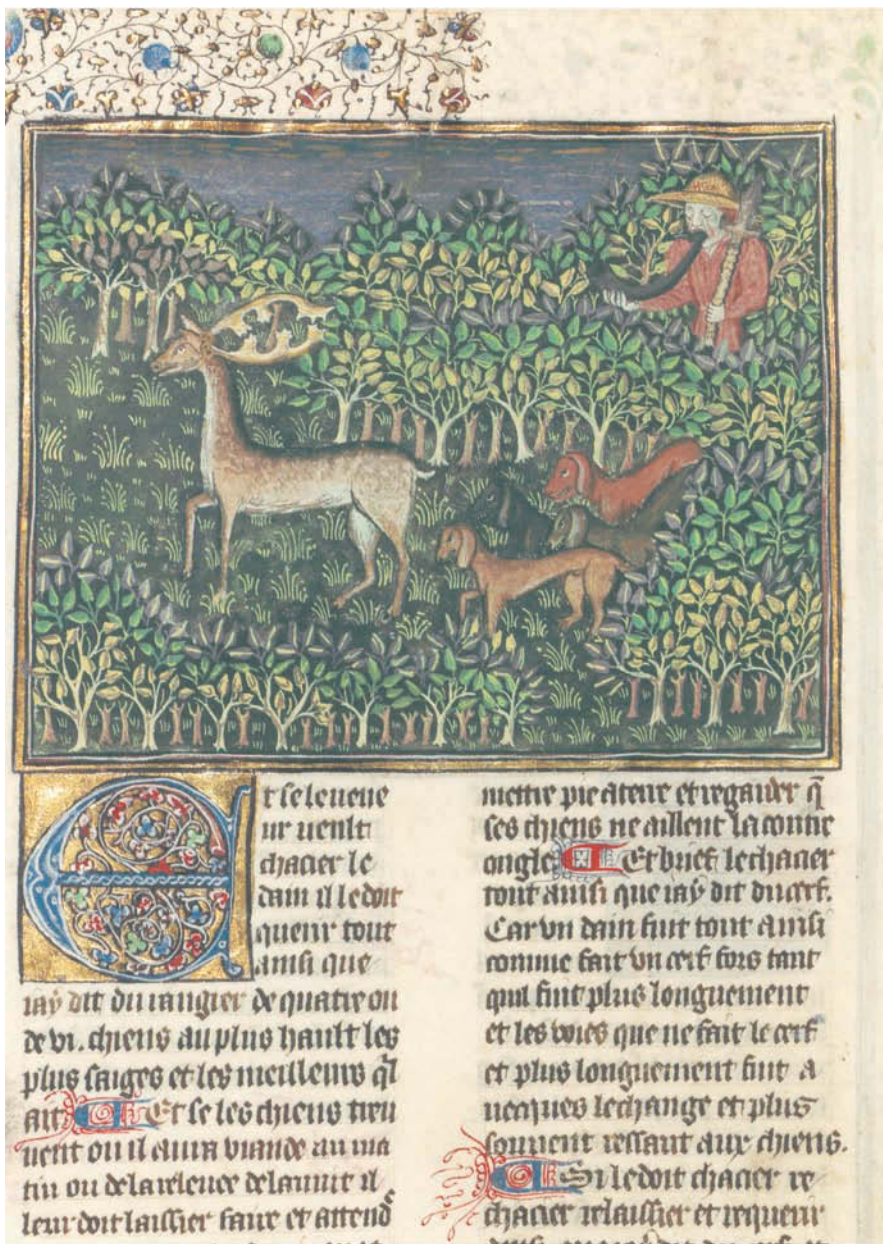 Et se le veneur
ur veult
chacier le
dain il le doit
querir tout
ainsi que
iay dit du rangier de quatre ou
de vi. chiens au plus hault les
plus saiges et les meilleurs ql
ait Et se les chiens treu
uent ou il aura viande au ma
tin ou de la releuee de la nuit il
leur doit laissier faire et attend
mettre pie a terre et regarder q̃
ses chiens ne aillent la contre
ongle Et brief le chacier
tout ainsi que iay dit du cerf.
Car vn dain fuit tout ainsi
comme fait vn cerf fors tant
quil fuit plus longuement
et les voies que ne fait le cerf
et plus longuement fuit a
uecques le change et plus
souuent ressaut aux chiens.
Si le doit chacier re
chacier relaissier et requerir